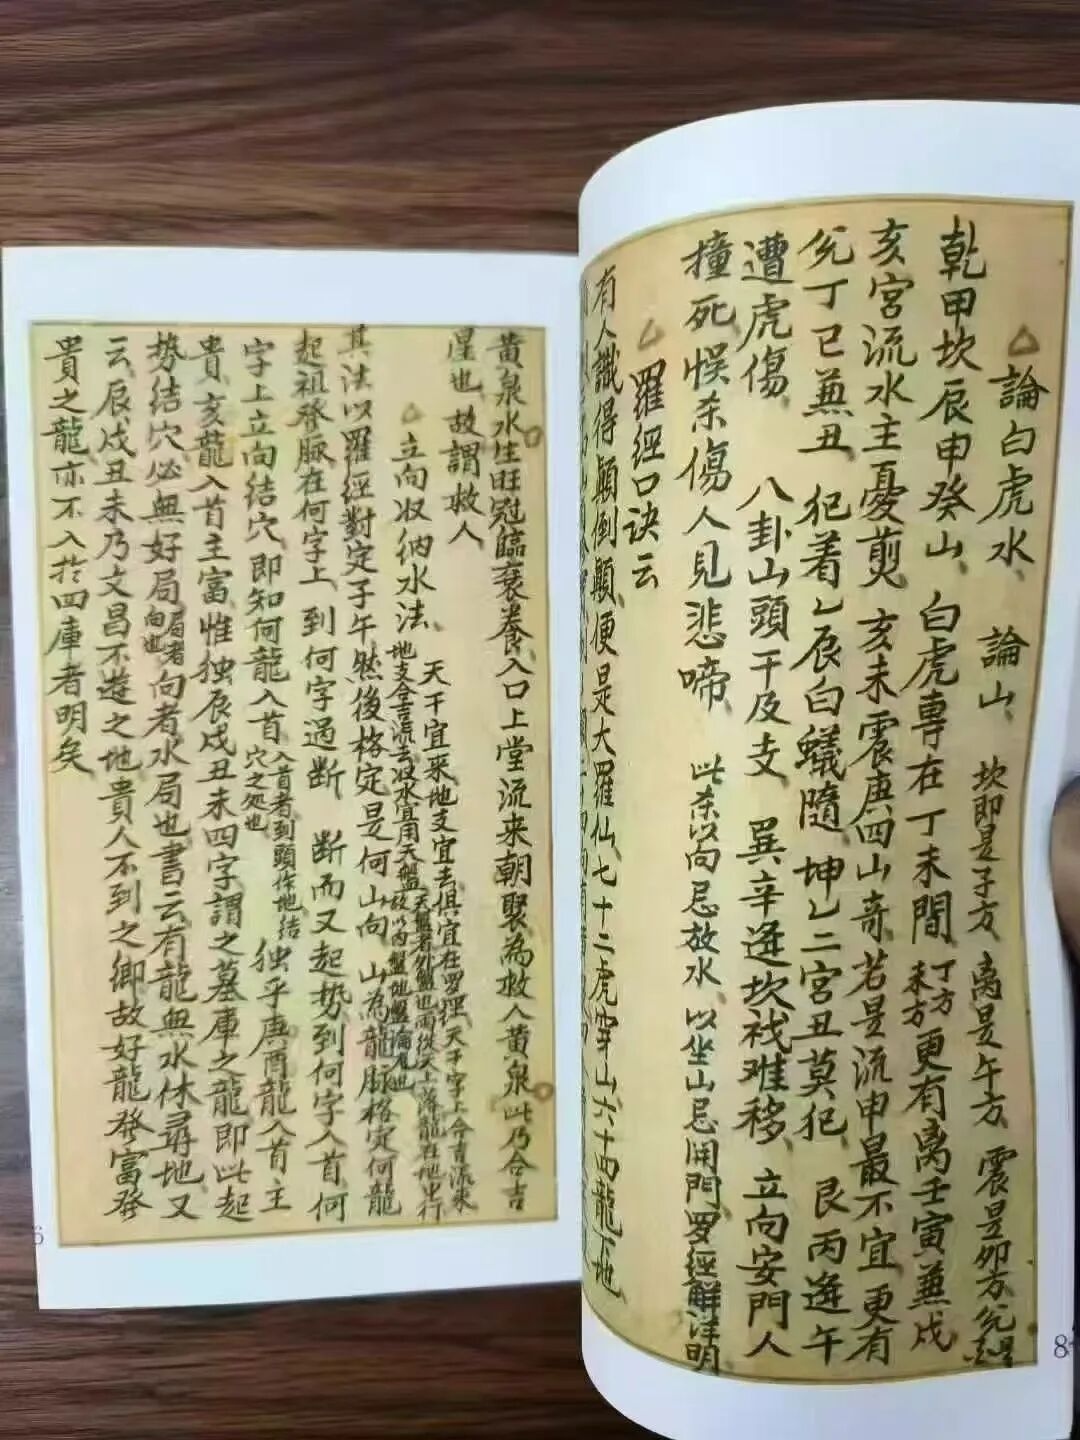 論白虎水、論山、坎即是子方、离是午方、震是卯方、兊
乾甲坎辰申癸山、白虎專在丁未間丁方未方更有离壬寅兼戌
亥宮流水主憂煎、亥未震庚四山奇若是流申最不宜更有
兊丁巳兼丑、犯着乙辰白蟻隨、坤乙二宮丑莫犯、艮丙逢午
遭虎傷、八卦山頭干及支、巽辛逢坎祸难移、立向安門人
撞死悮杀傷人見悲啼、此杀以向忌放水、以坐山忌開門、罗經解註明
羅經口诀云
有人識得顛倒顛、便是大羅仙七十二虎穿山六十四龍下地
黄泉水生旺冠臨衰養、入口上堂流來朝聚為救人黄泉此乃合吉
星也、故謂救人
立向收纳水法、天干宜來地支宜去俱宜在罗理、天干字上合吉流來
地支合吉流去收水宜用天盤
其法以羅經對定子午然後格定是何山向、山為龍脈格定何龍
起祖發脈在何字上、到何字過断、断而又起势到何字入首、何
字上立向結穴、即知何龍入首、入首者到頭作地結穴之処也独乎庚酉龍入首主
貴、亥龍入首主富、惟独辰戌丑未四字謂之墓庫之龍即此起
势結穴必無好局局者向也向者水局也書云有龍無水休尋地、又
云、辰戌丑未乃文昌不遊之地貴人不到之卿故好龍發富發
貴之龍亦不入於四庫者明矣
6
8